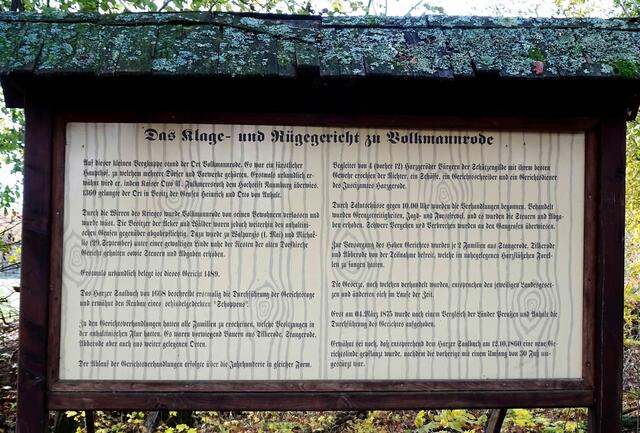 Das Klage- und Rügegericht zu Volkmannrode
Auf dieser kleinen Bergkuppe stand der Ort Volkmannrode. Es war ein fürstlicher
Haupthof, zu welchem mehrere Dörfer und Vorwerke gehörten. Erstmals urkundlich er-
wähnt wird er, indem Kaiser Otto III. Fulkmeresroth dem Hochstift Naumburg überwies.
1360 gelangte der Ort in Besitz der Grafen Heinrich und Otto von Anhalt.
Durch die Wirren des Krieges wurde Volkmannrode von seinen Bewohnern verlassen und
wurde wüst. Die Besitzer der Äcker und Wälder waren jedoch weiterhin den anhaltini-
schen Grafen gegenüber abgabepflichtig. Dazu wurde zu Walpurgis (1. Mai) und Michaē-
lis (29. September) unter einer gewaltigen Linde nahe der Resten der alten Dorfkirche
Gericht gehalten sowie Steuern und Abgaben erhoben.
Erstmals urkundlich belegt ist dieses Gericht 1489.
Das Harzer Saalbuch von 1668 beschreibt erstmalig die Durchführung der Gerichtstage
und erwähnt den Neubau eines schindelgedeckten "Schuppens".
Zu den Gerichtsverhandlungen hatten alle Familien zu erscheinen, welche Besitzungen in
der anhaltinischen Flur hatten. Es waren vorwiegend Bauern aus Dillerode, Stangerode,
Abberode aber auch aus weiter gelegenen Orten.
Der Ablauf der Gerichtsverhandlungen erfolgte über die Jahrhunderte in gleicher Form.
Begleitet von 4 (vorher 12) Harzgeröder Bürgern der Schützengilde mit ihrem besten
Gewehr erschien der Richter, ein Schöffe, ein Gerichtsschreiber und ein Gerichtsdiener
des Justizamtes Harzgerode.
Durch Salutschüsse gegen 10.00 Uhr wurden die Verhandlungen begonnen. Behandelt
wurden Grenzstreitigkeiten, Jagd- und Forstfrevel, und es wurden die Steuern und Abga-
ben erhoben. Schwere Vergehen und Verbrechen wurden an den Gaugrafen überwiesen.
Zur Versorgung des Hohen Gerichtes wurden je 2 Familien aus Stangerode, Dillerode
und Abberode von der Teilnahme befreit, welche im nahegelegenen Harzflüßchen Forel-
len zu fangen hatten.
Die Gesetze, nach welchen verhandelt wurden, entsprechen den jeweiligen Landesgeset-
zen und änderten sich im Laufe der Zeit.
Erst am 04.März 1875 wurde nach einem Vergleich der Länder Preußen und Anhalt die
Durchführung des Gerichtes aufgehoben.
Erwähnt sei noch, daß entsprechend dem Harzer Saalbuch am 12.10.1860 eine neue Ge-
richtslinde gepflanzt wurde, nachdem die vorherige mit einem Umfang von 30 Fuß um-
gestürzt war.